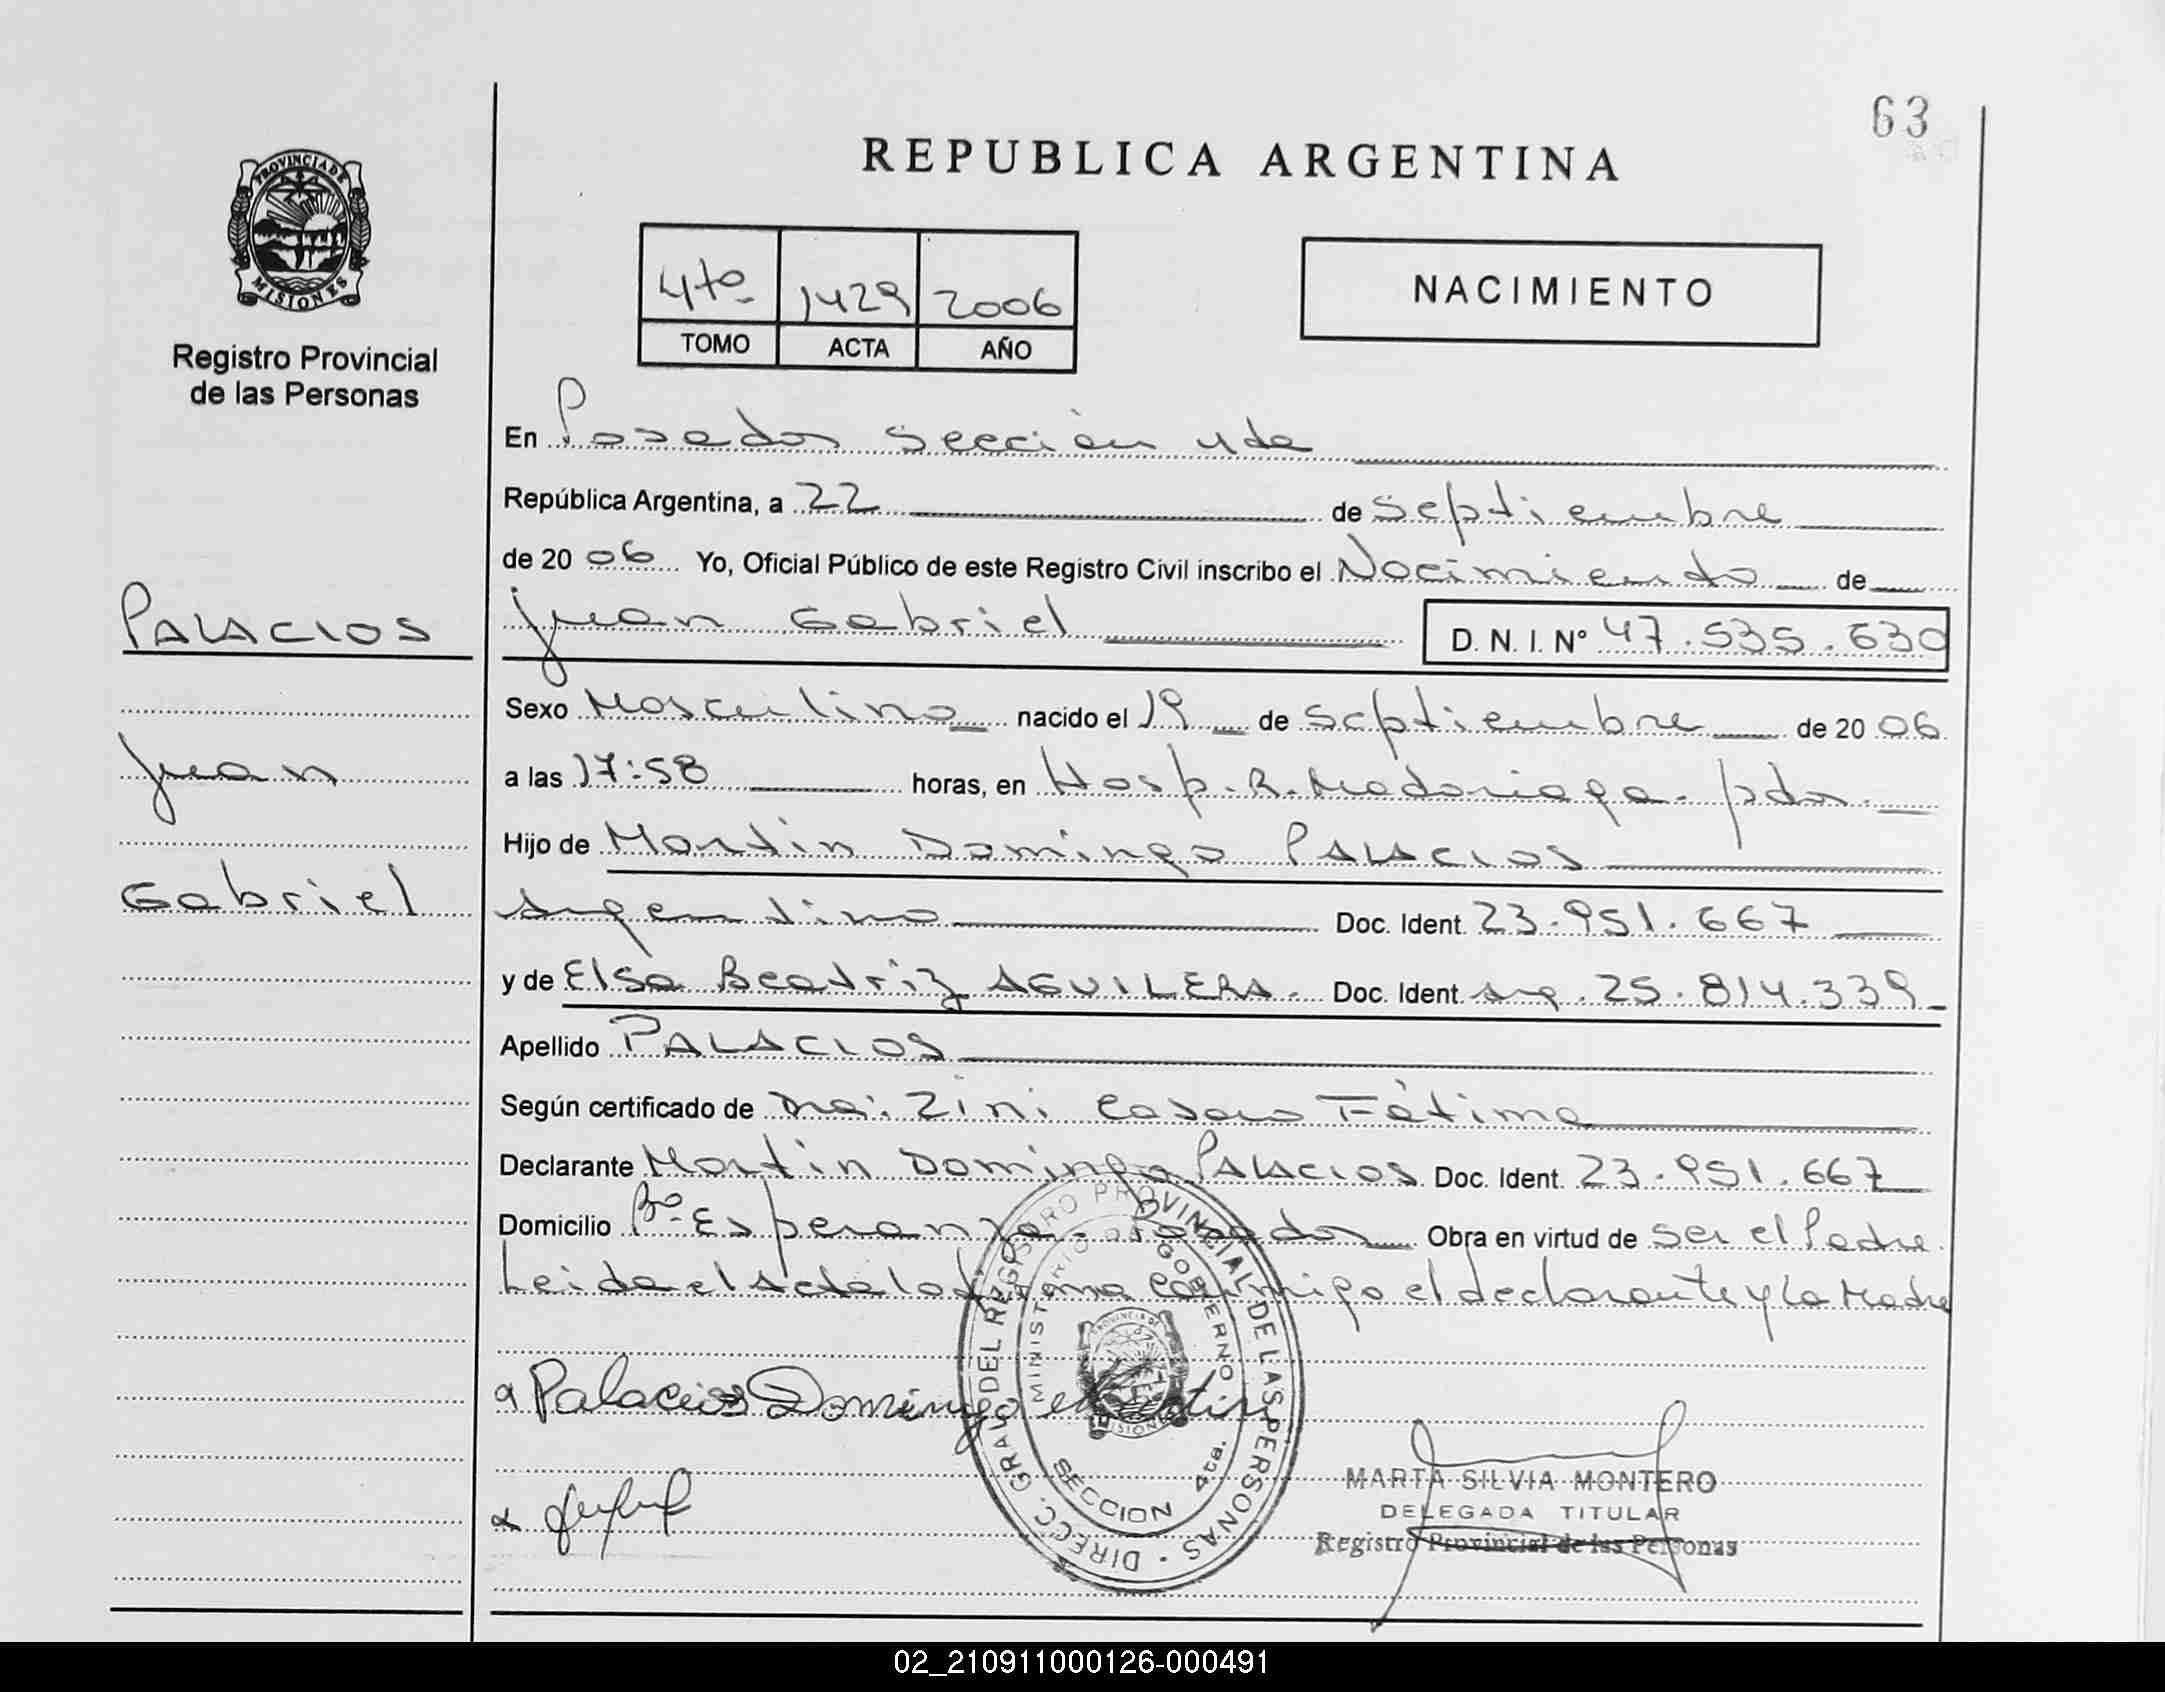 63
REPUBLICA ARGENTINA
PROVINCIA DE
MISIONES
Registro Provincial
de las Personas
4to 1429 2006
TOMO ACTA AÑO
NACIMIENTO
En Posadas Sección 4ta
República Argentina, a 22 de Septiembre
de 20 06 Yo, Oficial Público de este Registro Civil inscribo el Nacimiento de
PALACIOS
Juan
Gabriel
Juan Gabriel D. N. I. N° 47.535.630
Sexo Masculino nacido el 19 de Septiembre de 20 06
a las 17:58 horas, en Hosp. R. Madariaga. pdas.
Hijo de Martín Domingo PALACIOS
Argentino Doc. Ident. 23.951.667
y de Elsa Beatriz AGUILERA. Doc. Ident. Arg. 25.814.339
Apellido PALACIOS
Según certificado de Dra. Zini Fátima
Declarante Martín Domingo PALACIOS Doc. Ident. 23.951.667
Domicilio Bo. Esperanza. Posadas Obra en virtud de ser el Padre
Leida el Acta la firma conmigo el declarante y la Madre
Palacios Domingo Martin
DIRECC. GRAL. DEL REGISTRO PROVINCIAL DE LAS PERSONAS
MINISTERIO DE GOBIERNO
SECCION 4ta.
MARTA SILVIA MONTERO
DELEGADA TITULAR
Registro Provincial de las Personas
02_210911000126-000491